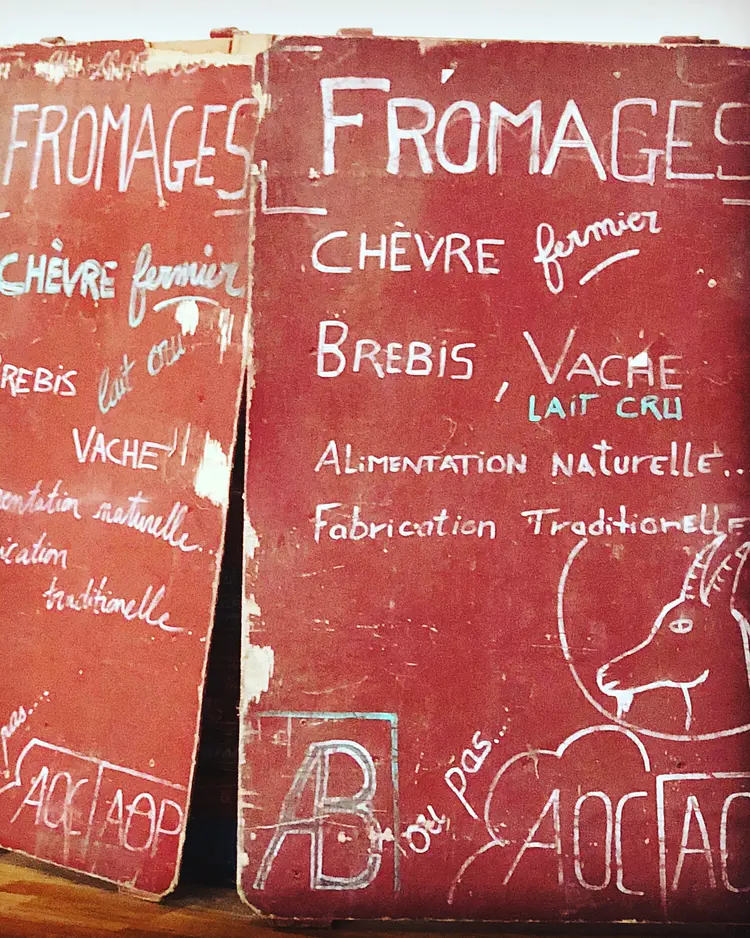 FROMAGES
CHÈVRE fermier
REBIS lait cru
VACHE !!
entation naturelle...
ication
traditionelle...
pas....
AOC AOP
FROMAGES
CHÈVRE fermier
BREBIS, VACHE
LAIT CRU
ALIMENTATION NATURELLE...
Fabrication Traditionelle
AB ou pas.... AOC AO